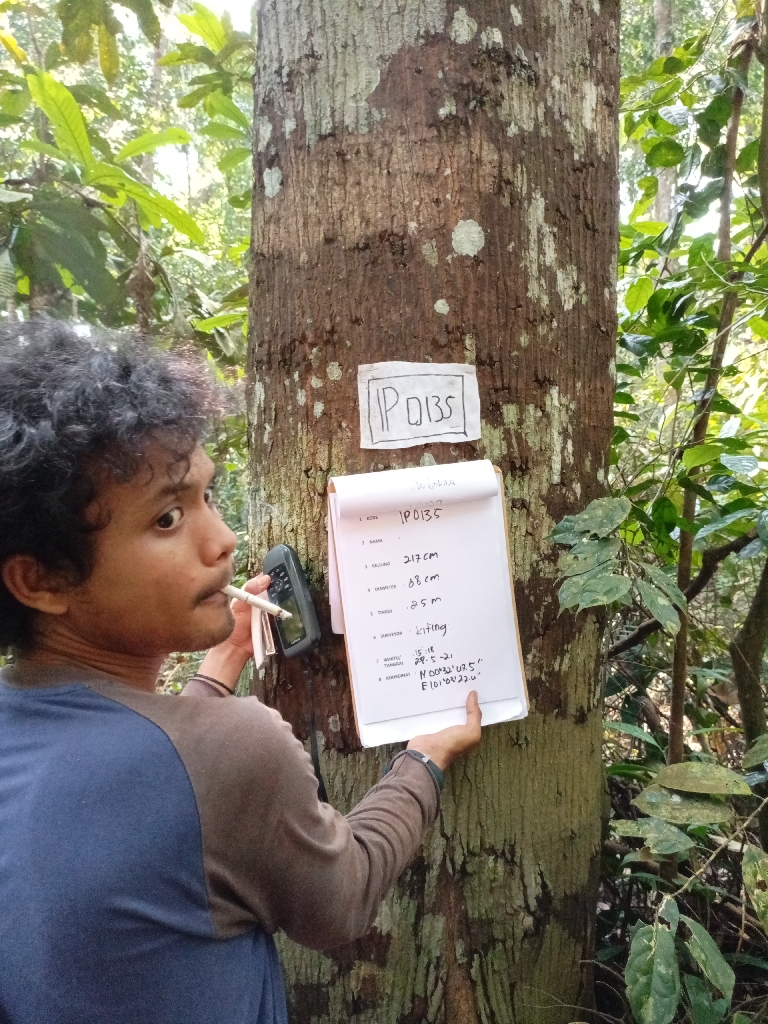 IP0135
1 KODE IP0135
2 NAMA .
3 KELILING 217 cm
4 DIAMETER 68 cm
5 TINGGI .25 m
6 SURVEYOR . Kifing
7 WAKTU/ .15.18
TANGGAL 29.5-21
8 KOORDINAT : N 00°32'07.5"